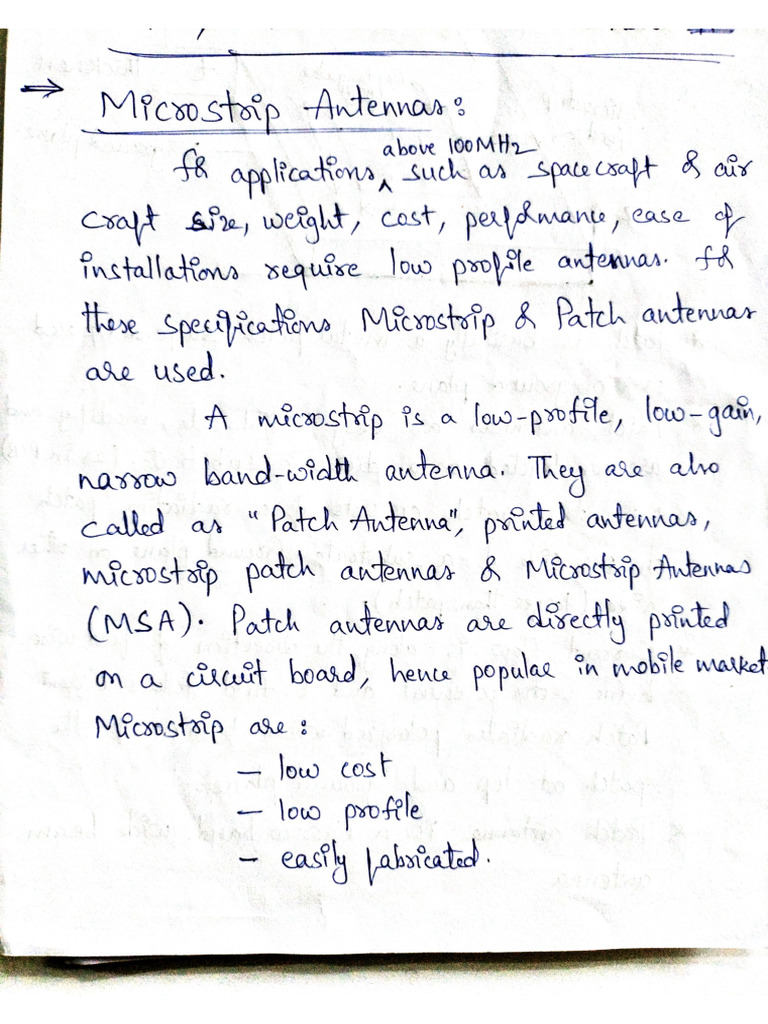 ⇒ Microstrip Antennas:
above 100MHz
for applications, ‸ such as spacecraft & air
craft size, weight, cost, performance, ease of
installations require low profile antennas. for
these specifications Microstrip & Patch antennas
are used.
A microstrip is a low-profile, low-gain,
narrow band-width antenna. They are also
called as "Patch Antenna", printed antennas,
microstrip patch antennas & Microstrip Antennas
(MSA). Patch antennas are directly printed
on a circuit board, hence popular in mobile market
Microstrip are:
- low cost
- low profile
- easily fabricated.